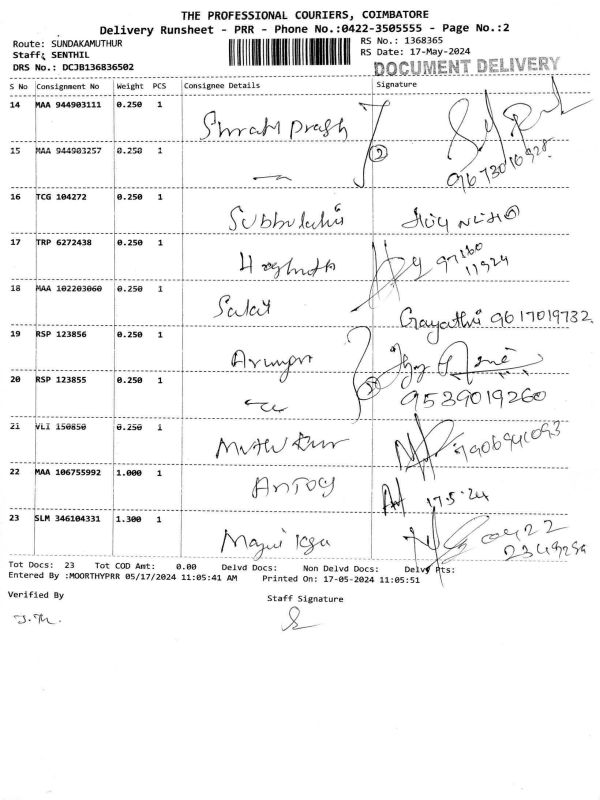 THE PROFESSIONAL COURIERS, COIMBATORE
Delivery Runsheet - PRR - Phone No.:0422-3505555 - Page No.:2
Route: SUNDAKAMUTHUR
RS No.: 1368365
Staff: SENTHIL
RS Date: 17-May-2024
DRS No.: DCJB136836502
DOCUMENT DELIVERY
S No Consignment No Weight PCS Consignee Details Signature
14 MAA 944903111 0.250 1
15 MAA 944903257 0.250 1 2
16 TCG 104272 0.250 1
17 TRP 6272438 0.250 1
18 MAA 102203060 0.250 1 Gayathri 9617019732
19 RSP 123856 0.250 1
20 RSP 123855 0.250 1 9539019260
21 VLI 150850 0.250 1
22 MAA 106755992 1.000 1 Antoy 17.5.24
23 SLM 346104331 1.300 1
Tot Docs: 23 Tot COD Amt: 0.00 Delvd Docs: Non Delvd Docs: Delvd Pts:
Entered By :MOORTHYPRR 05/17/2024 11:05:41 AM Printed On: 17-05-2024 11:05:51
Verified By
Staff Signature